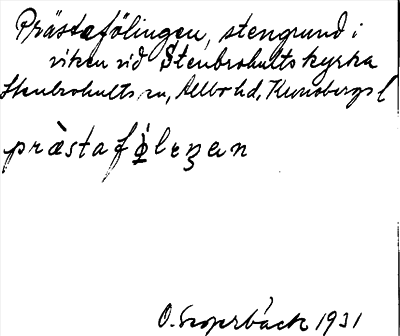 Prästafölingen, stengrund i
viken vid Stenbrohults kyrka
Stenbrohults sn, Allbo hd, Kronobergs l
præ̀stafø̀leŋan
O. 1931